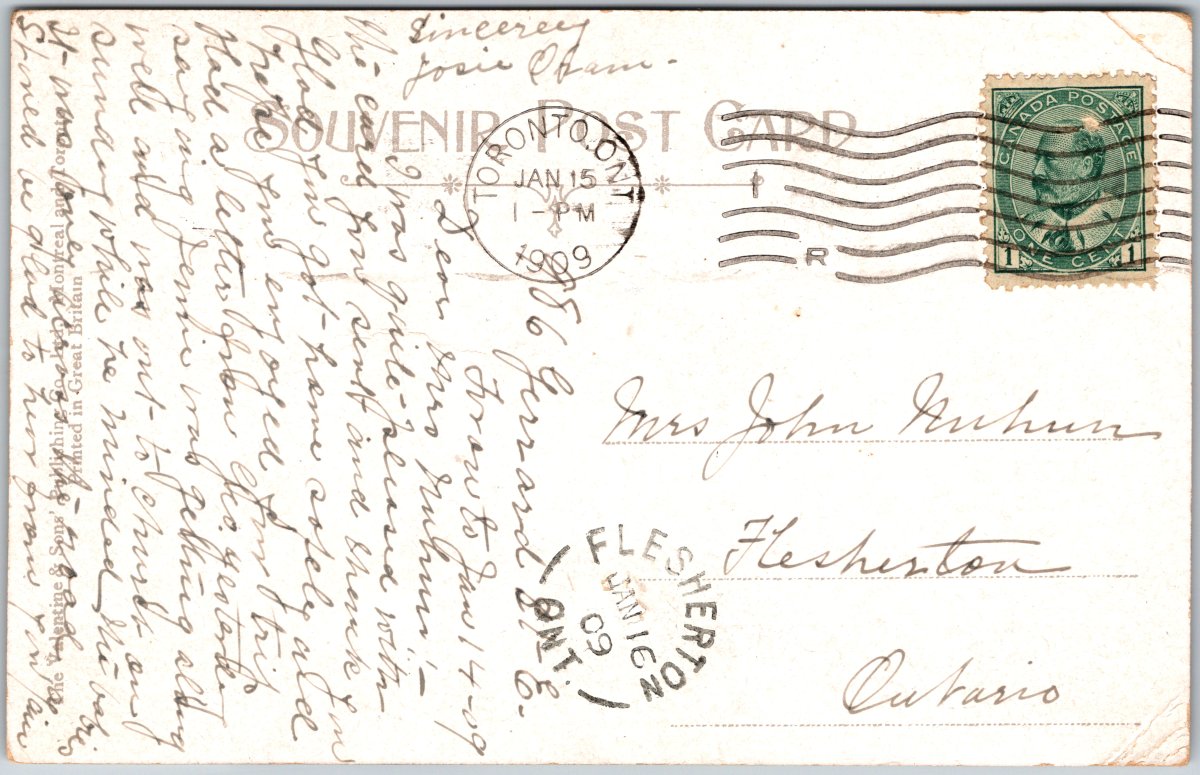 SOUVENIR POST CARD
TORONTO, ONT
JAN 15
1 - PM
1909
1
R
CANADA POSTAGE
1 ONE CENT 1
Mrs John Nuhun
Flesherton
Ontario
FLESHERTON
JAN 16
09
ONT.
Gerrard St E.
Toronto Jan 14-09
Dear Mrs Nuhun-
I was quite pleased with
the card you sent and thank you
Glad you got home safely and
hope you enjoyed your trip
Had a letter from Gho yesterday
saying Jennie was getting along
well and was out to church on
sunday while he minded the babies
It was
Should be glad to hear from you again
Sincerely
Josie
The Valentine & Sons' Publishing Co., Ltd., Montreal and Toronto
Printed in Great Britain